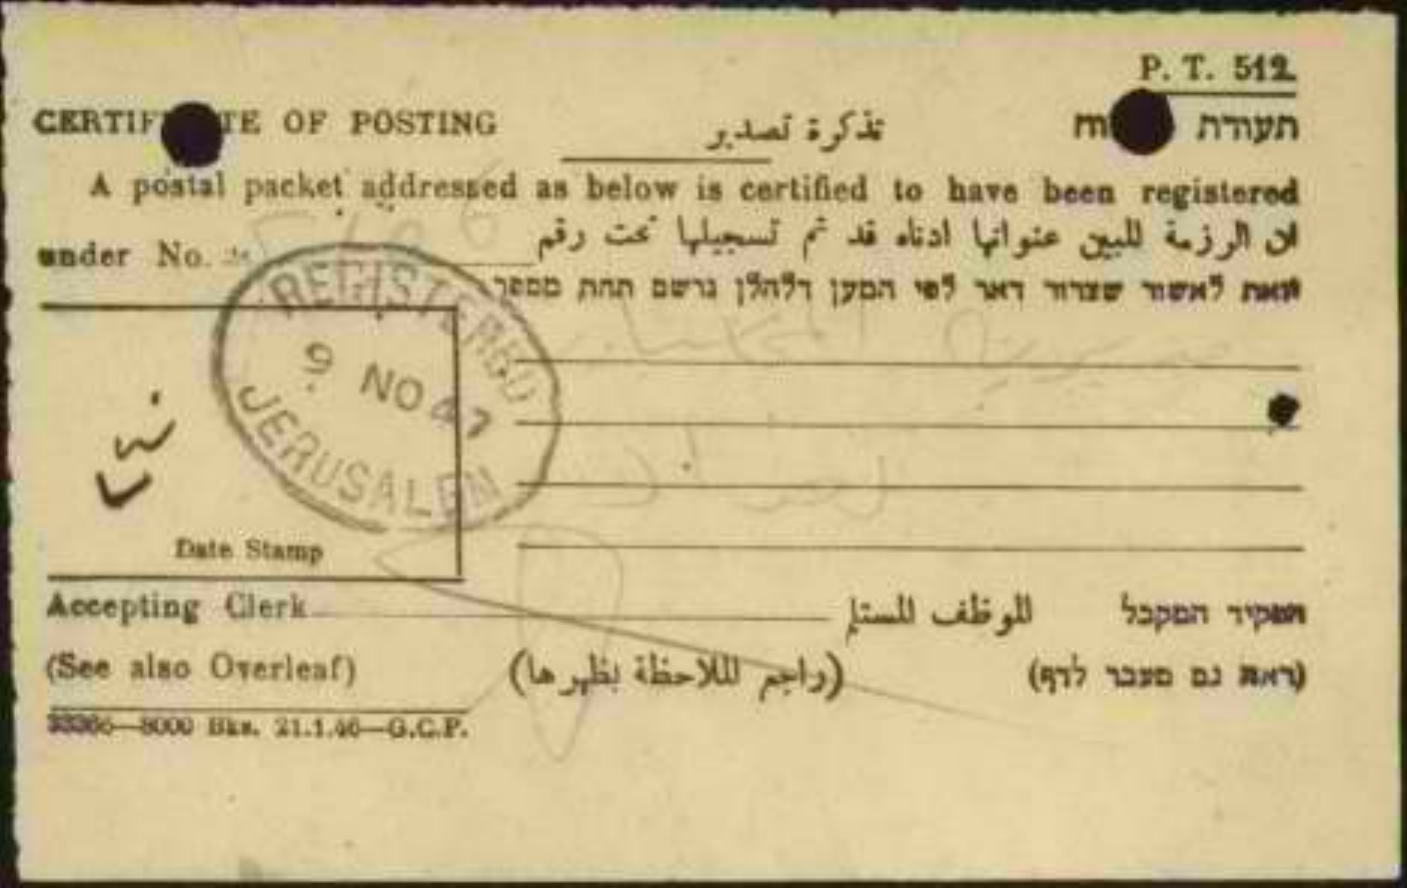 P. T. 512.
CERTIF TE OF POSTING تذكرة تصدير תעודת
A postal packet addressed as below is certified to have been registered
under No. ان الرزمة المبين عنوانها ادناه قد تم تسجيلها تحت رقم
זאת לאשור שצרור דאר לפי המען דלהלן נרשם תחת מספר
REGISTERED
9 NO 47
JERUSALEM
Date Stamp
Accepting Clerk الموظف المستلم הפקיד המקבל
(See also Overleaf) (راجع الملاحظة بظهرها) (ראה גם מעבר לדף)
33366—8000 Bks. 21.1.46—G.C.P.